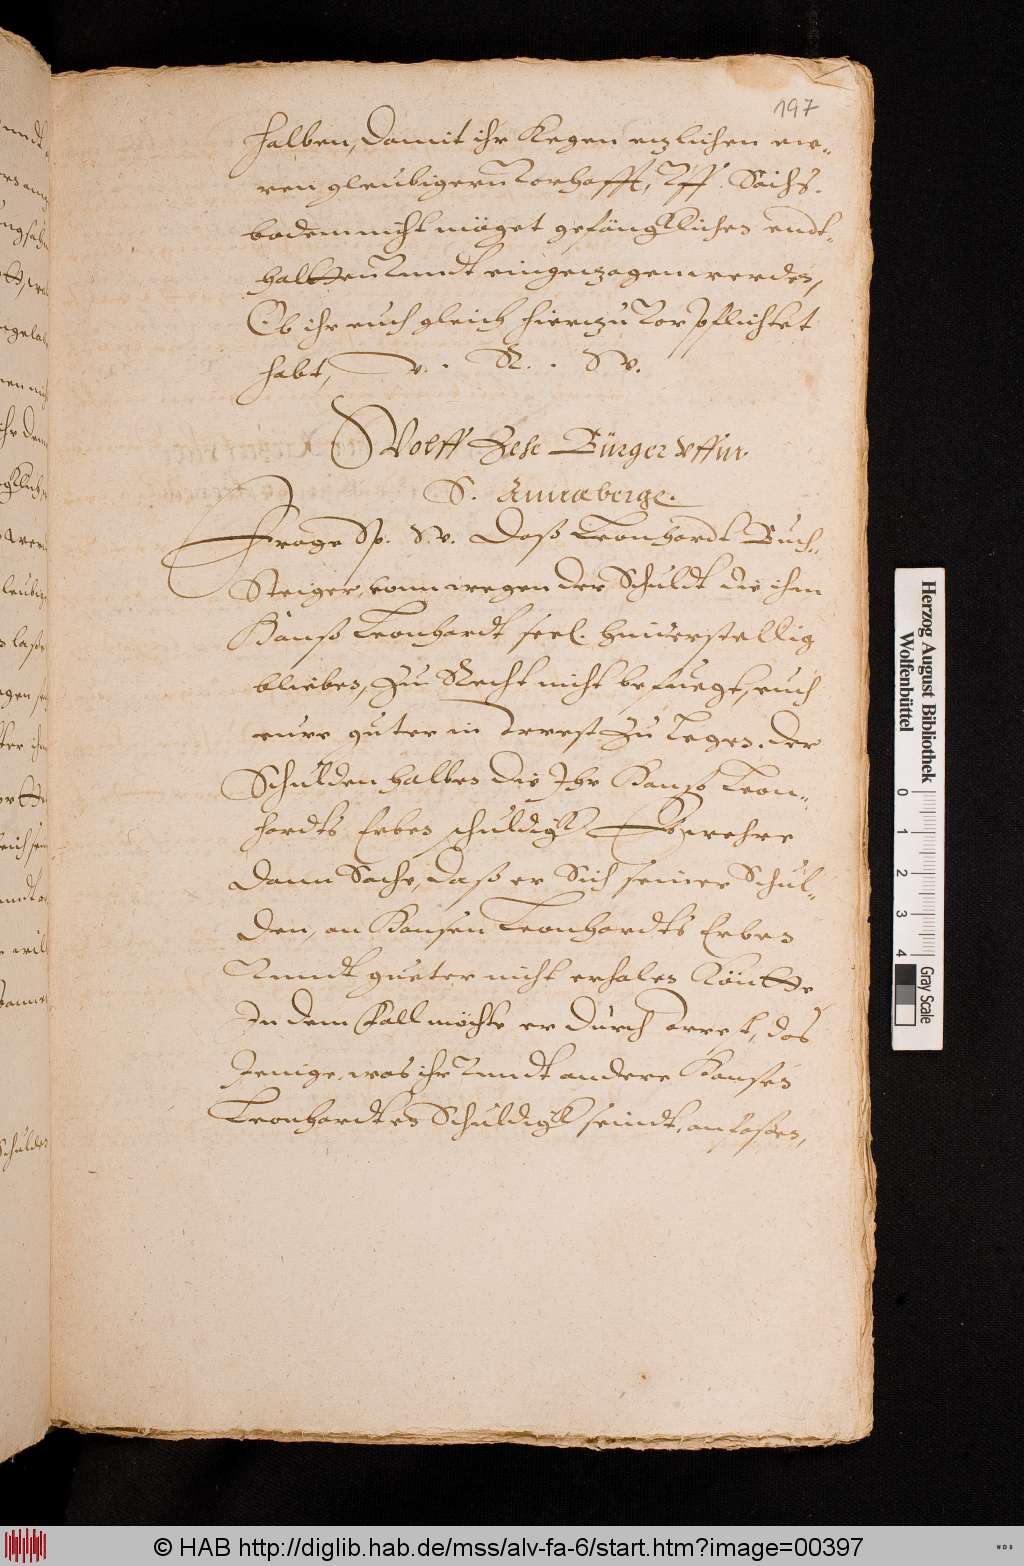 197
halben, damit ihr kegen etzlichen ew-
ren gleubigern vorhafft, vff Sächs.
bodem nicht möget gefängklichen endt-
haltten vnndt eingezogen werden,
Ob ihr euch gleich hierzu vorpflichtet
habt, v. R. S v.
Wolff Zese Bürger vffm
S. Annaberge.
Frage Sp. S. v. Daß Leonhardt Buch-
Steiger, vonn wegen der Schuldt die ihm
Hanß Leonhardt seel. hinterstellig
blieben, zu Recht nicht befuegt, euch
eure guter in Arrest zu legen. der
Schulden halben die Ihr Hanß Leon-
hardts Erben schuldigk, Es wehre
dann Sache, daß er Sich seiner Schul-
den, an Hansen Leonhardts Erben
vnndt gueter nicht erholen köntte
In dem Fall möchte er durch arrest, das
Jenige, was ihr vnndt andere Hansen
Leonhardten Schuldigk seindt, anfaßen,
Herzog August Bibliothek
Wolfenbüttel
0 1 2 3 4
Gray Scale
© HAB http://diglib.hab.de/mss/alv-fa-6/start.htm?image=00397